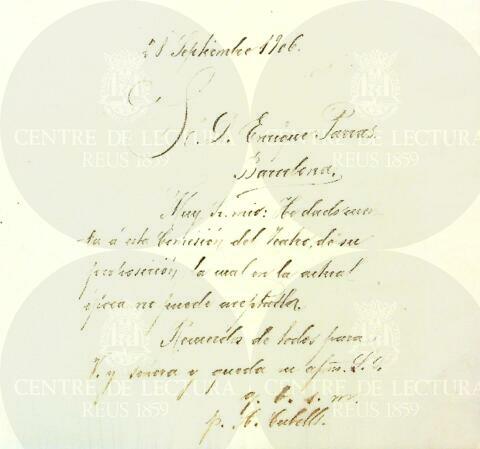 28 Septiembre 1906.
S. D. Enrique Parras.
Barcelona.
Muy Sr. mio: He dado cuen
ta á esta Comisión del Teatro, de su
proposición la cual en la actual
época no puede aceptarla.
Recuerdos de todos para
V. y señora y queda su afmo. S. S.
q. b. s. m.
p. A. Cubells.
CENTRE DE LECTURA
REUS 1859
CENTRE DE LECTURA
REUS 1859
CENTRE DE LECTURA
REUS 1859
CENTRE DE LECTURA
REUS 1859